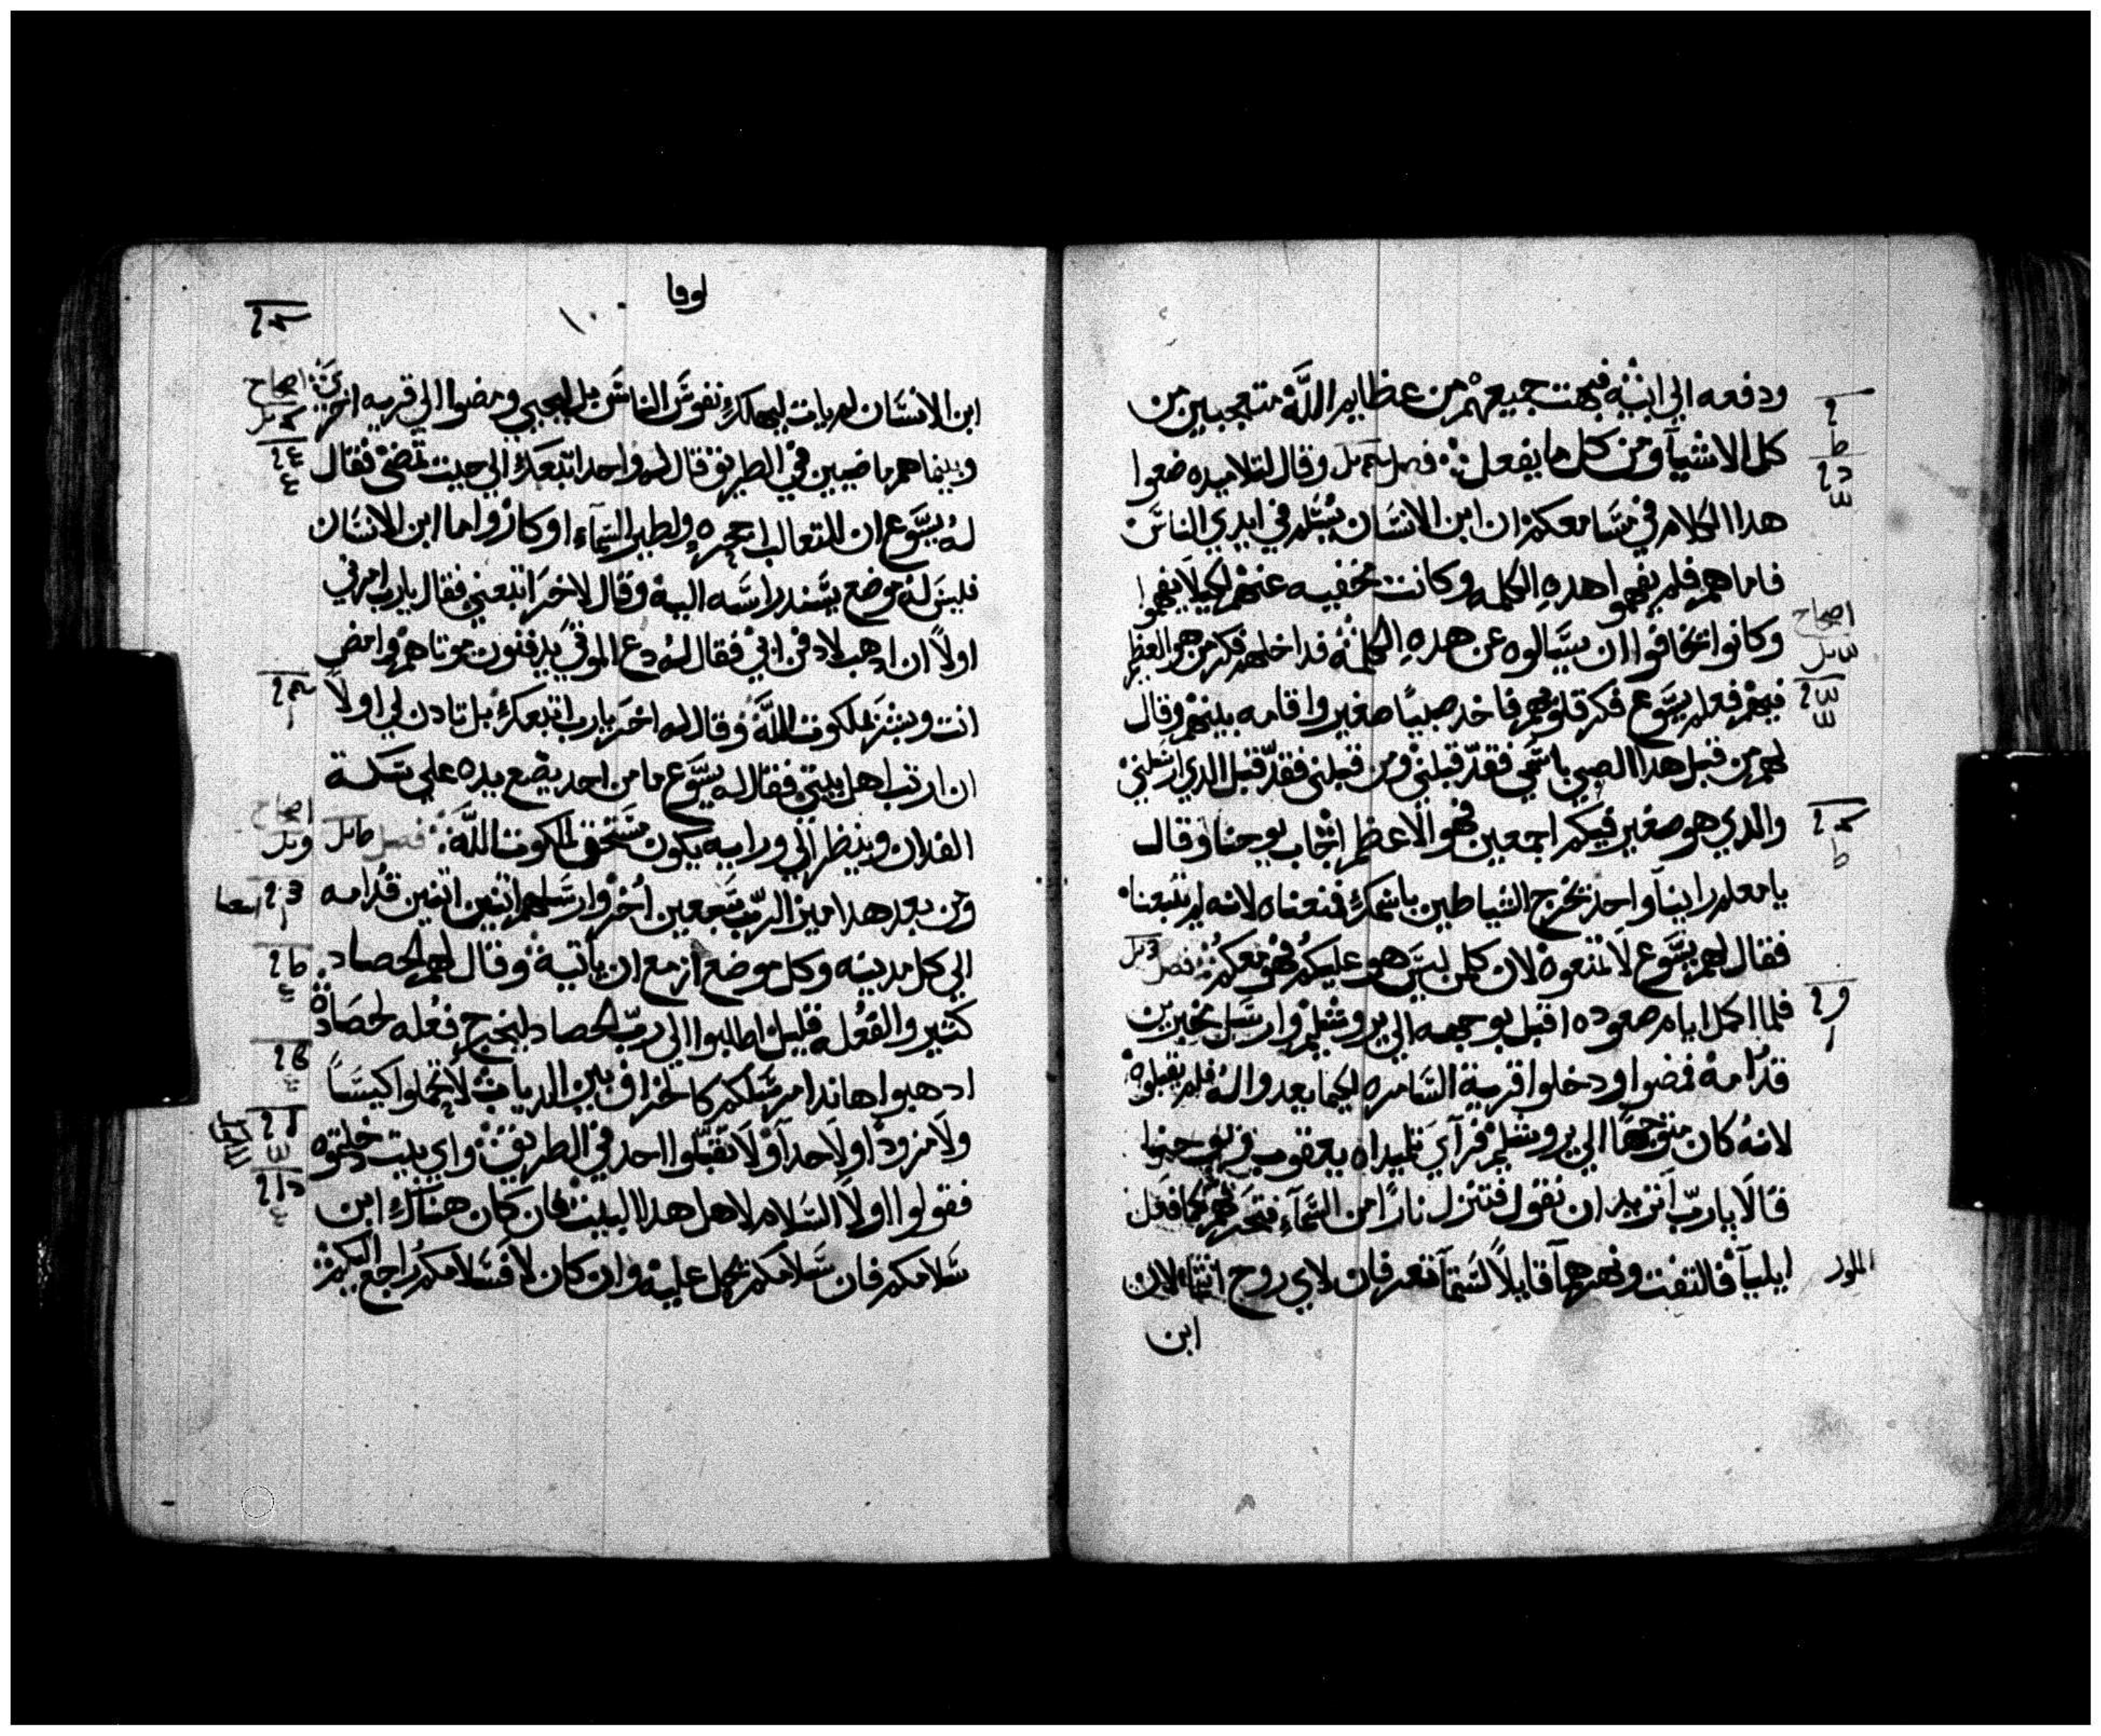 ودفعه الى ابيه فبهت جميعهم من عظايم الله متعجبين من
كل الاشيآ ومن كل ما يفعل فصل وقال لتلاميده ضعوا
هدا الكلام في مسامعكم ان ابن الانسان يسلم في ايدي الناس
فاما هم فلم يفهموا هده الكلمه وكانت مخفيه عنهم لكيلا يفهموا
وكانوا تخافوا ان يسالوه عن هده الكلمه فداخلهم فكر من هو العظيم
اصحاح
فيهم فعلم يسوع فكر قلوبهم فاخد صبيًا صغير واقامه بينهم وقال
لهم من قبل هدا الصبي باسمي فقد قبلني ومن قبلني فقد قبل الدي ارسلني
والدي هو صغير فيكم اجمعين فهو الاعظم اجاب يوحنا وقال
يا معلم راينآ واحد تخرج الشياطين باسمك فمنعناه لانه لم تتبعنا
فقال لهم يسوع لا تمنعوه لان كلمن ليس هو عليكم فهو معكم فصل
فلما اكمل ايام صعوده اقبل بوجهه الى يروشليم وارسل مخبرين
قدامه فمضوا ودخلوا قرية السامره ليكما يعدوا له فلم يقبلوه
لانه كان متوجهًا الي يروشليم فرآي تلميداه يعقوب ويوحنا
قالا يارب اتريد ان نقول فتنزل نارًا من السمآء فتحرقهم كما فعل
ايليآ فالتفت ونهرهمآ قايلاً لستمآ تعرفان لاي روح انتما لان
ابن
لوقا
١٠
ابن الانسان لم يات ليهلك نفوس الناس بل ليحيي ومضوا الي قريه اخري
اصحاح
وبينما هم ماضيين في الطريق قال له واحد اتبعك الي حيت تمضي فقال
له يسوع ان للتعالب اجحره ولطير السمآء اوكار واما ابن الانسان
فليس له موضع يسند راسه اليه وقال لاخر اتبعني فقال يارب امرني
اولاً ان ادهب لادفن ابي فقال له دع الموتي يدفنون موتاهم وامض
انت وبشر بملكوت الله وقال له اخر يارب اتبعك بل تادن لي اولا
ان ارتب اهل بيتي فقال له يسوع ما من احد يضع يده علي سكة
الفدان وينظر الي ورايه يكون مستحق لملكوت الله فصل
اصحاح
ومن بعد هدا ميز الرب سبعين اخر وارسلهم اتنين اتنين قدامه
الي كل مدينه وكل موضع ازمع ان ياتيه وقال لهم الحصاد
كثير والفعله قليل اطلبوا الي رب الحصاد ليخرج فعله لحصاده
ادهبوا هاندا مرسلكم كالخراف بين الدياب لا تحملوا كيسًا
ولا مزودًا ولا حدآ ولا تقبلوا احد في الطريق واي بيت دخلتوه
فقولوا اولاً السلام لاهل هدا البيت فان كان هناك ابن
سلامكم فان سلامكم تحل عليه وان كان لا فسلامكم راجع اليكم